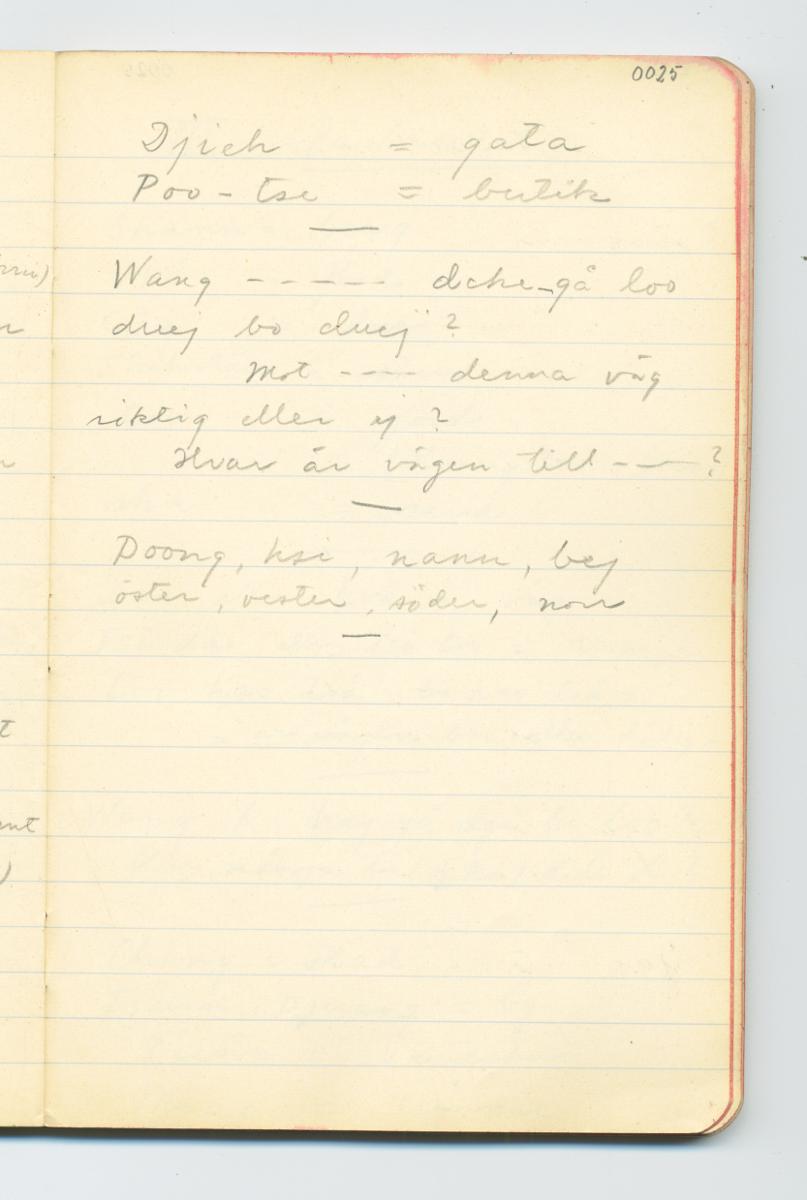 0025
Djieh = gata
Poo-tse = butik
Wang ----- dche-gå loo
duej bo duej ?
Mot ---- denna väg
riktig eller ej ?
Hvar är vägen till --- ?
Doong, hsi, nann, bej
öster, vester, söder, norr